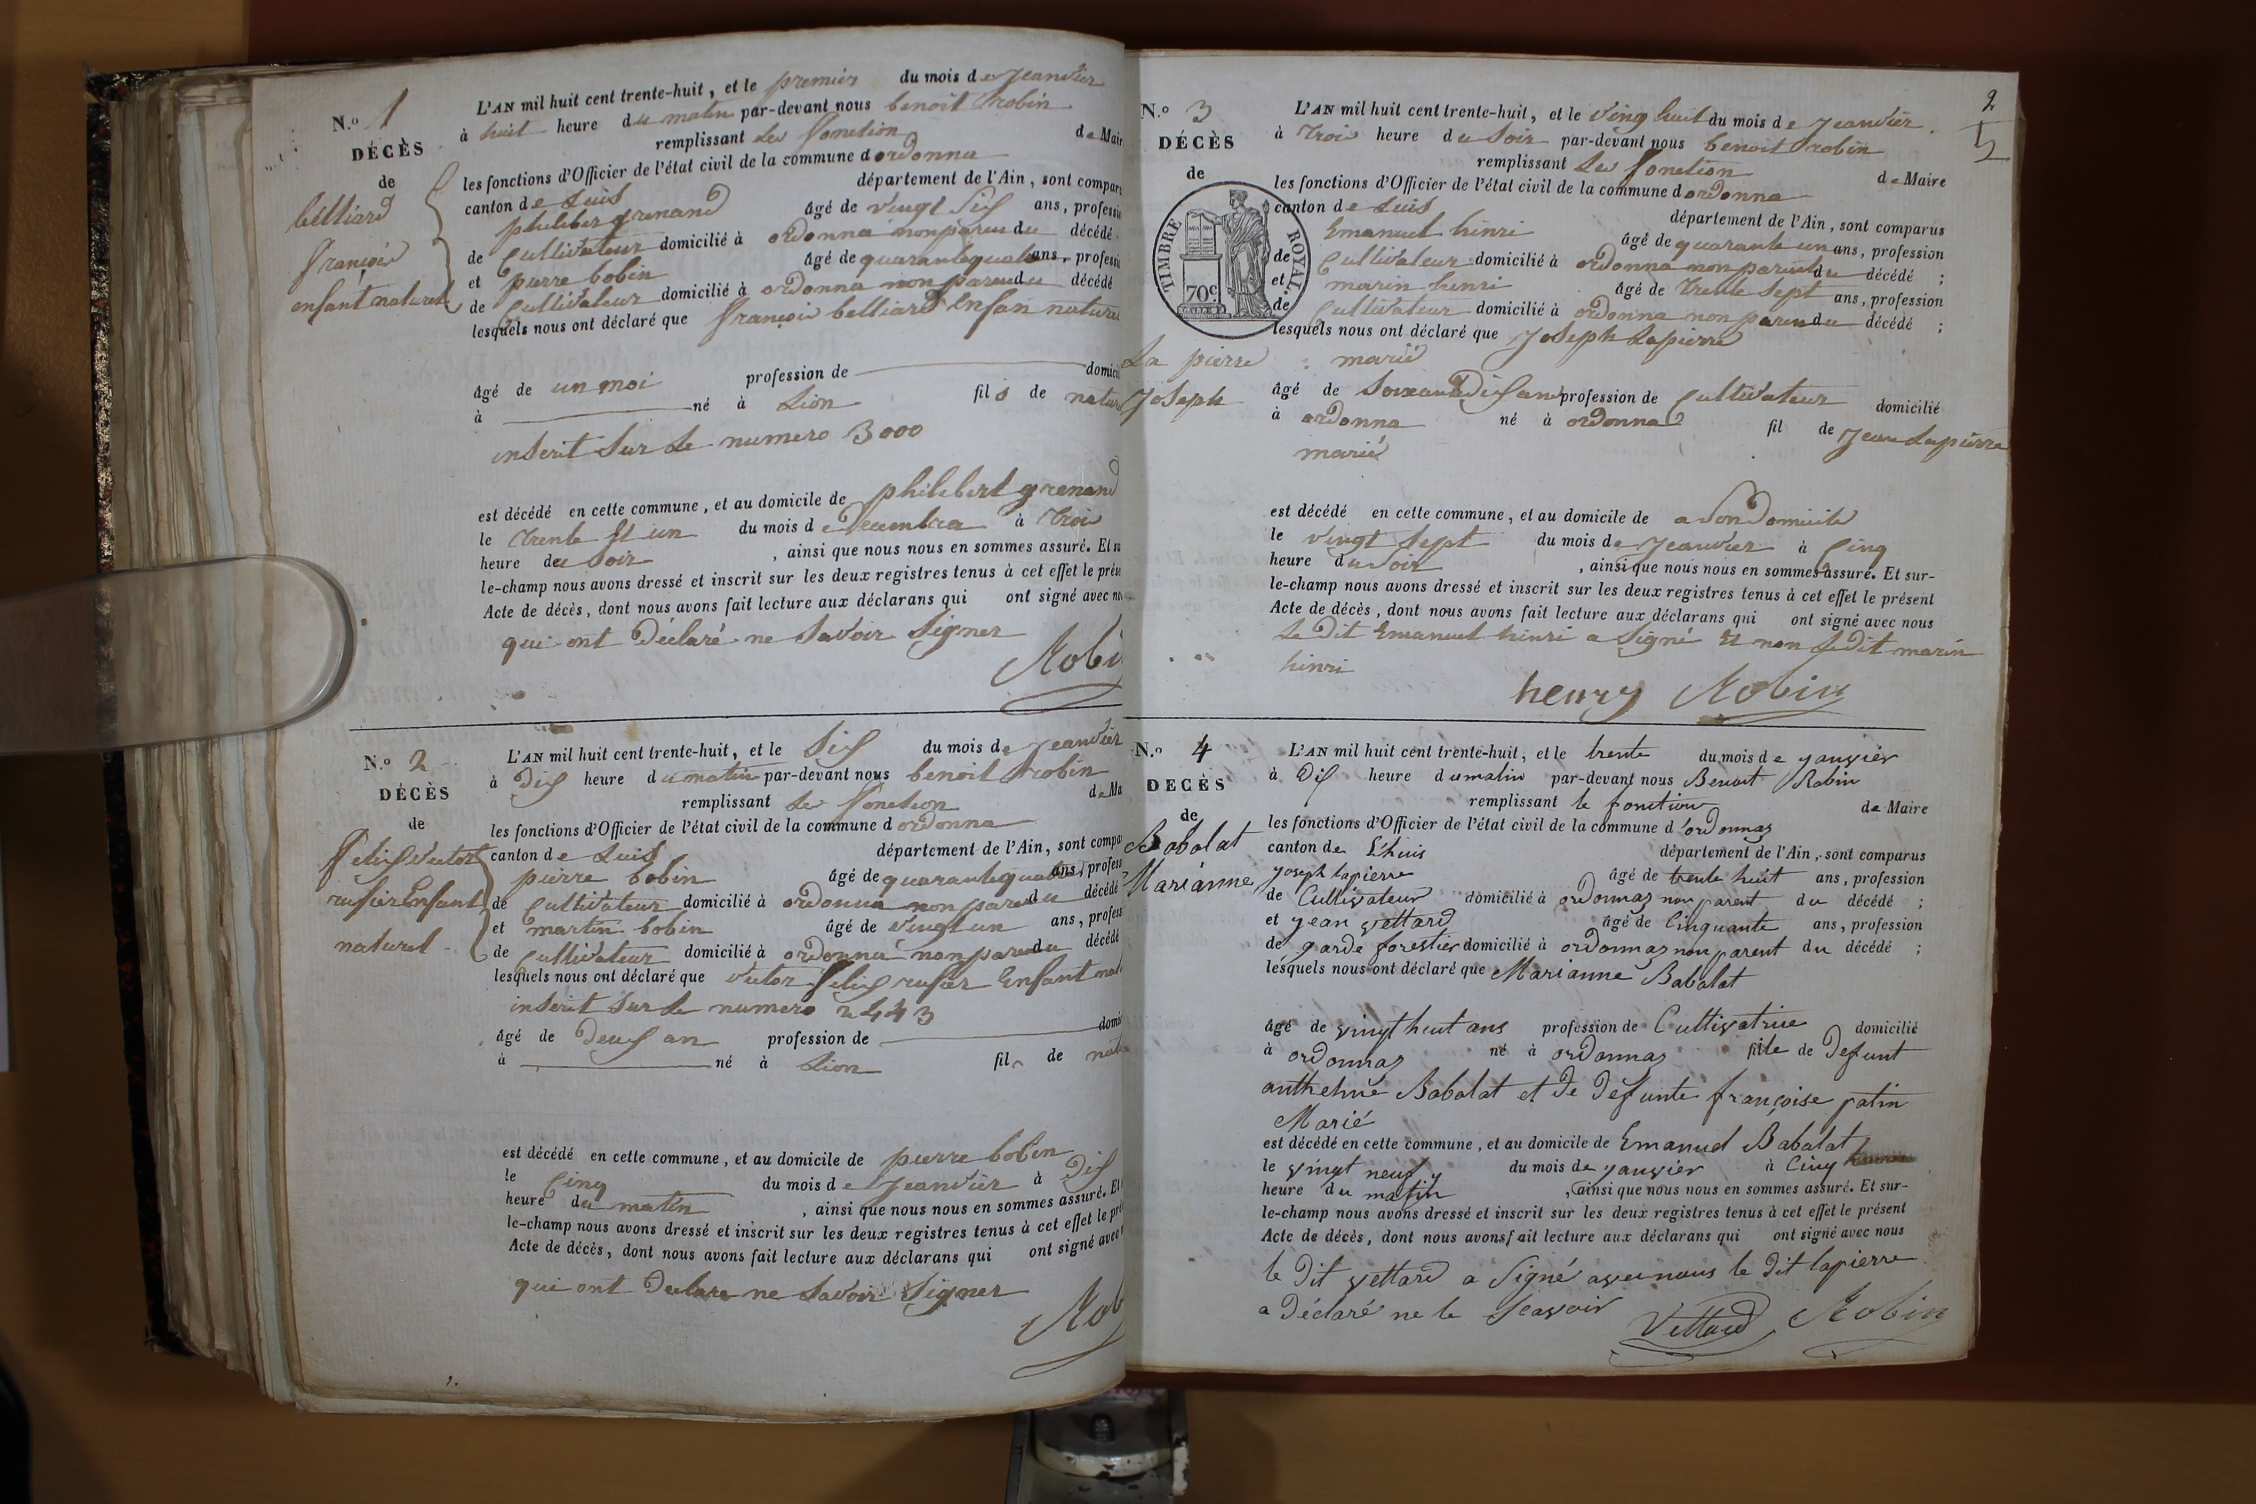 N.º 1
DÉCÈS
de
belliard
françois
enfant naturel
L'AN mil huit cent trente-huit, et le premier du mois de jeanvier
à huit heure du matin par-devant nous benoit robin
remplissant les fonction de Mair
les fonctions d'Officier de l'état civil de la commune d ordonna
canton de Luis département de l'Ain, sont compar
philiber grenand âgé de vingt dix ans, professi
de Cultivateur domicilié à ordonna non paren du décédé
et pierre bobin âgé de quarante quatre ans, professi
de Cultivateur domicilié à ordonna non paren du décédé
lesquels nous ont déclaré que françois belliard Enfan nature
âgé de un moi profession de domici
à né à Lion fils de nature
inscrit Sur Le numero 3000
est décédé en cette commune, et au domicile de philibert grenand
le trente et un du mois de decembre à trois
heure du Soir, ainsi que nous nous en sommes assuré. Et
le-champ nous avons dressé et inscrit sur les deux registres tenus à cet effet le prés
Acte de décès, dont nous avons fait lecture aux déclarans qui ont signé avec no
qui ont Déclaré ne Savoir Signer
Robi
N.º 2
DÉCÈS
de
felix victor
rufier Enfant
naturel
L'AN mil huit cent trente-huit, et le Six du mois de jeanvier
à Dix heure du matin par-devant nous benoit robin
remplissant les fonction de Ma
les fonctions d'Officier de l'état civil de la commune d ordonna
canton de Luis département de l'Ain, sont compa
pierre bobin âgé de quarante quatre ans, profess
de Cultivateur domicilié à ordonna non paren du décédé
et martin bobin âgé de vingt un ans, profess
de Cultivateur domicilié à ordonna non paren du décédé
lesquels nous ont déclaré que victor felix rufier Enfant nat
inscrit Sur Le numero 2443
âgé de Deux an profession de domi
à né à Lion fil de nat
est décédé en cette commune, et au domicile de pierre bobin
le Cinq du mois de jeanvier à Dix
heure du matin, ainsi que nous nous en sommes assuré. Et
le-champ nous avons dressé et inscrit sur les deux registres tenus à cet effet le pré
Acte de décès, dont nous avons fait lecture aux déclarans qui ont signé avec
qui ont Declare ne Savoir Signer
Rob
2
N.º 3
DÉCÈS
de
TIMBRE ROYAL.
70c.
La pierre
joseph
L'AN mil huit cent trente-huit, et le ving huit du mois de jeanvier
à trois heure du Soir par-devant nous benoit robin
remplissant Les fonction de Maire
les fonctions d'Officier de l'état civil de la commune d ordonna
canton de Luis département de l'Ain, sont comparus
Emanuel hinri âgé de quarante un ans, profession
de Cultivateur domicilié à ordonna non parent du décédé ;
et marin hinri âgé de trente Sept ans, profession
de Cultivateur domicilié à ordonna non paren du décédé ;
lesquels nous ont déclaré que joseph Lapierre
marié
âgé de Soixante Dix an profession de Cultivateur domicilié
à ordonna né à ordonna fil de jean Lapierre
marié
est décédé en cette commune, et au domicile de a Son Domicile
le vingt Sept du mois de jeanvier à Cinq
heure du Soir, ainsi que nous nous en sommes assuré. Et sur-
le-champ nous avons dressé et inscrit sur les deux registres tenus à cet effet le présent
Acte de décès, dont nous avons fait lecture aux déclarans qui ont signé avec nous
Le Dit Emanuel hinri a Signé Et non Ledit marin
hinri
henry Robin
N.º 4
DÉCÈS
de
Babolat
Marianne
L'AN mil huit cent trente-huit, et le trente du mois de janvier
à dix heure du matin par-devant nous Benoit Robin
remplissant le fonction de Maire
les fonctions d'Officier de l'état civil de la commune d'ordonnaz
canton de L'huis département de l'Ain, sont comparus
joseph lapierre âgé de trente huit ans, profession
de Cultivateur domicilié à ordonnaz non parent du décédé ;
et jean vettard âgé de Cinquante ans, profession
de garde forestier domicilié à ordonnaz non parent du décédé ;
lesquels nous ont déclaré que Marianne Babolat
âgé de vingt huit ans profession de Cultivatrice domicilié
à ordonnaz né à ordonnaz fille de Defunt
anthelme Babolat et De Défunte françoise patin
Marié
est décédé en cette commune, et au domicile de Emanuel Babolat
le vingt neuf du mois de janvier à Cinq
heure du matin, ainsi que nous nous en sommes assuré. Et sur-
le-champ nous avons dressé et inscrit sur les deux registres tenus à cet effet le présent
Acte de décès, dont nous avons fait lecture aux déclarans qui ont signé avec nous
le Dit vettard a Signé avec nous le Dit lapierre
a Déclaré ne le Scavoir
Vettard Robin